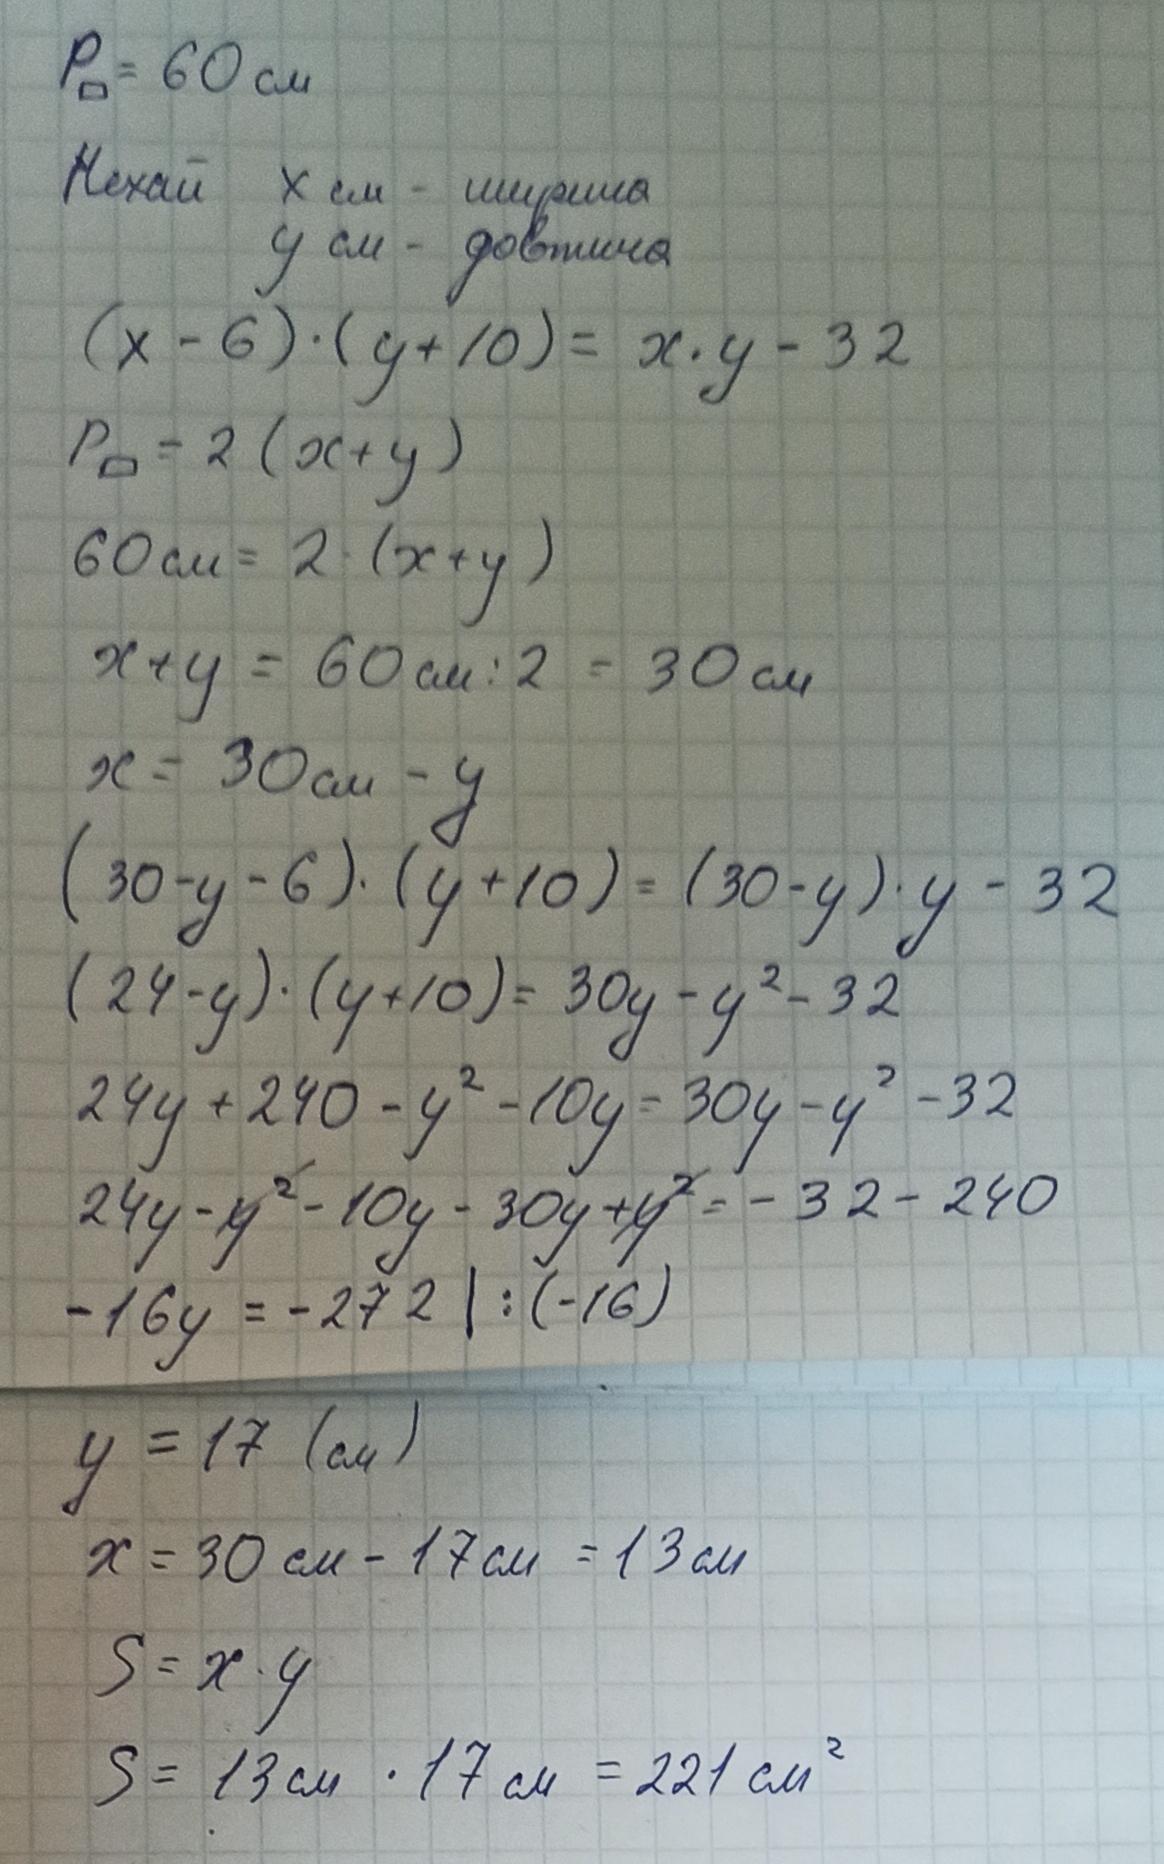 P▭ = 60 см
Нехай x см - ширина
y см - довжина
(x - 6) · (y + 10) = x · y - 32
P▭ = 2 (x + y)
60 см = 2 · (x + y)
x + y = 60 см : 2 = 30 см
x = 30 см - y
(30 - y - 6) · (y + 10) = (30 - y) · y - 32
(24 - y) · (y + 10) = 30y - y² - 32
24y + 240 - y² - 10y = 30y - y² - 32
24y - y² - 10y - 30y + y² = - 32 - 240
-16y = -272 | : (-16)
y = 17 (см)
x = 30 см - 17 см = 13 см
S = x · y
S = 13 см · 17 см = 221 см²